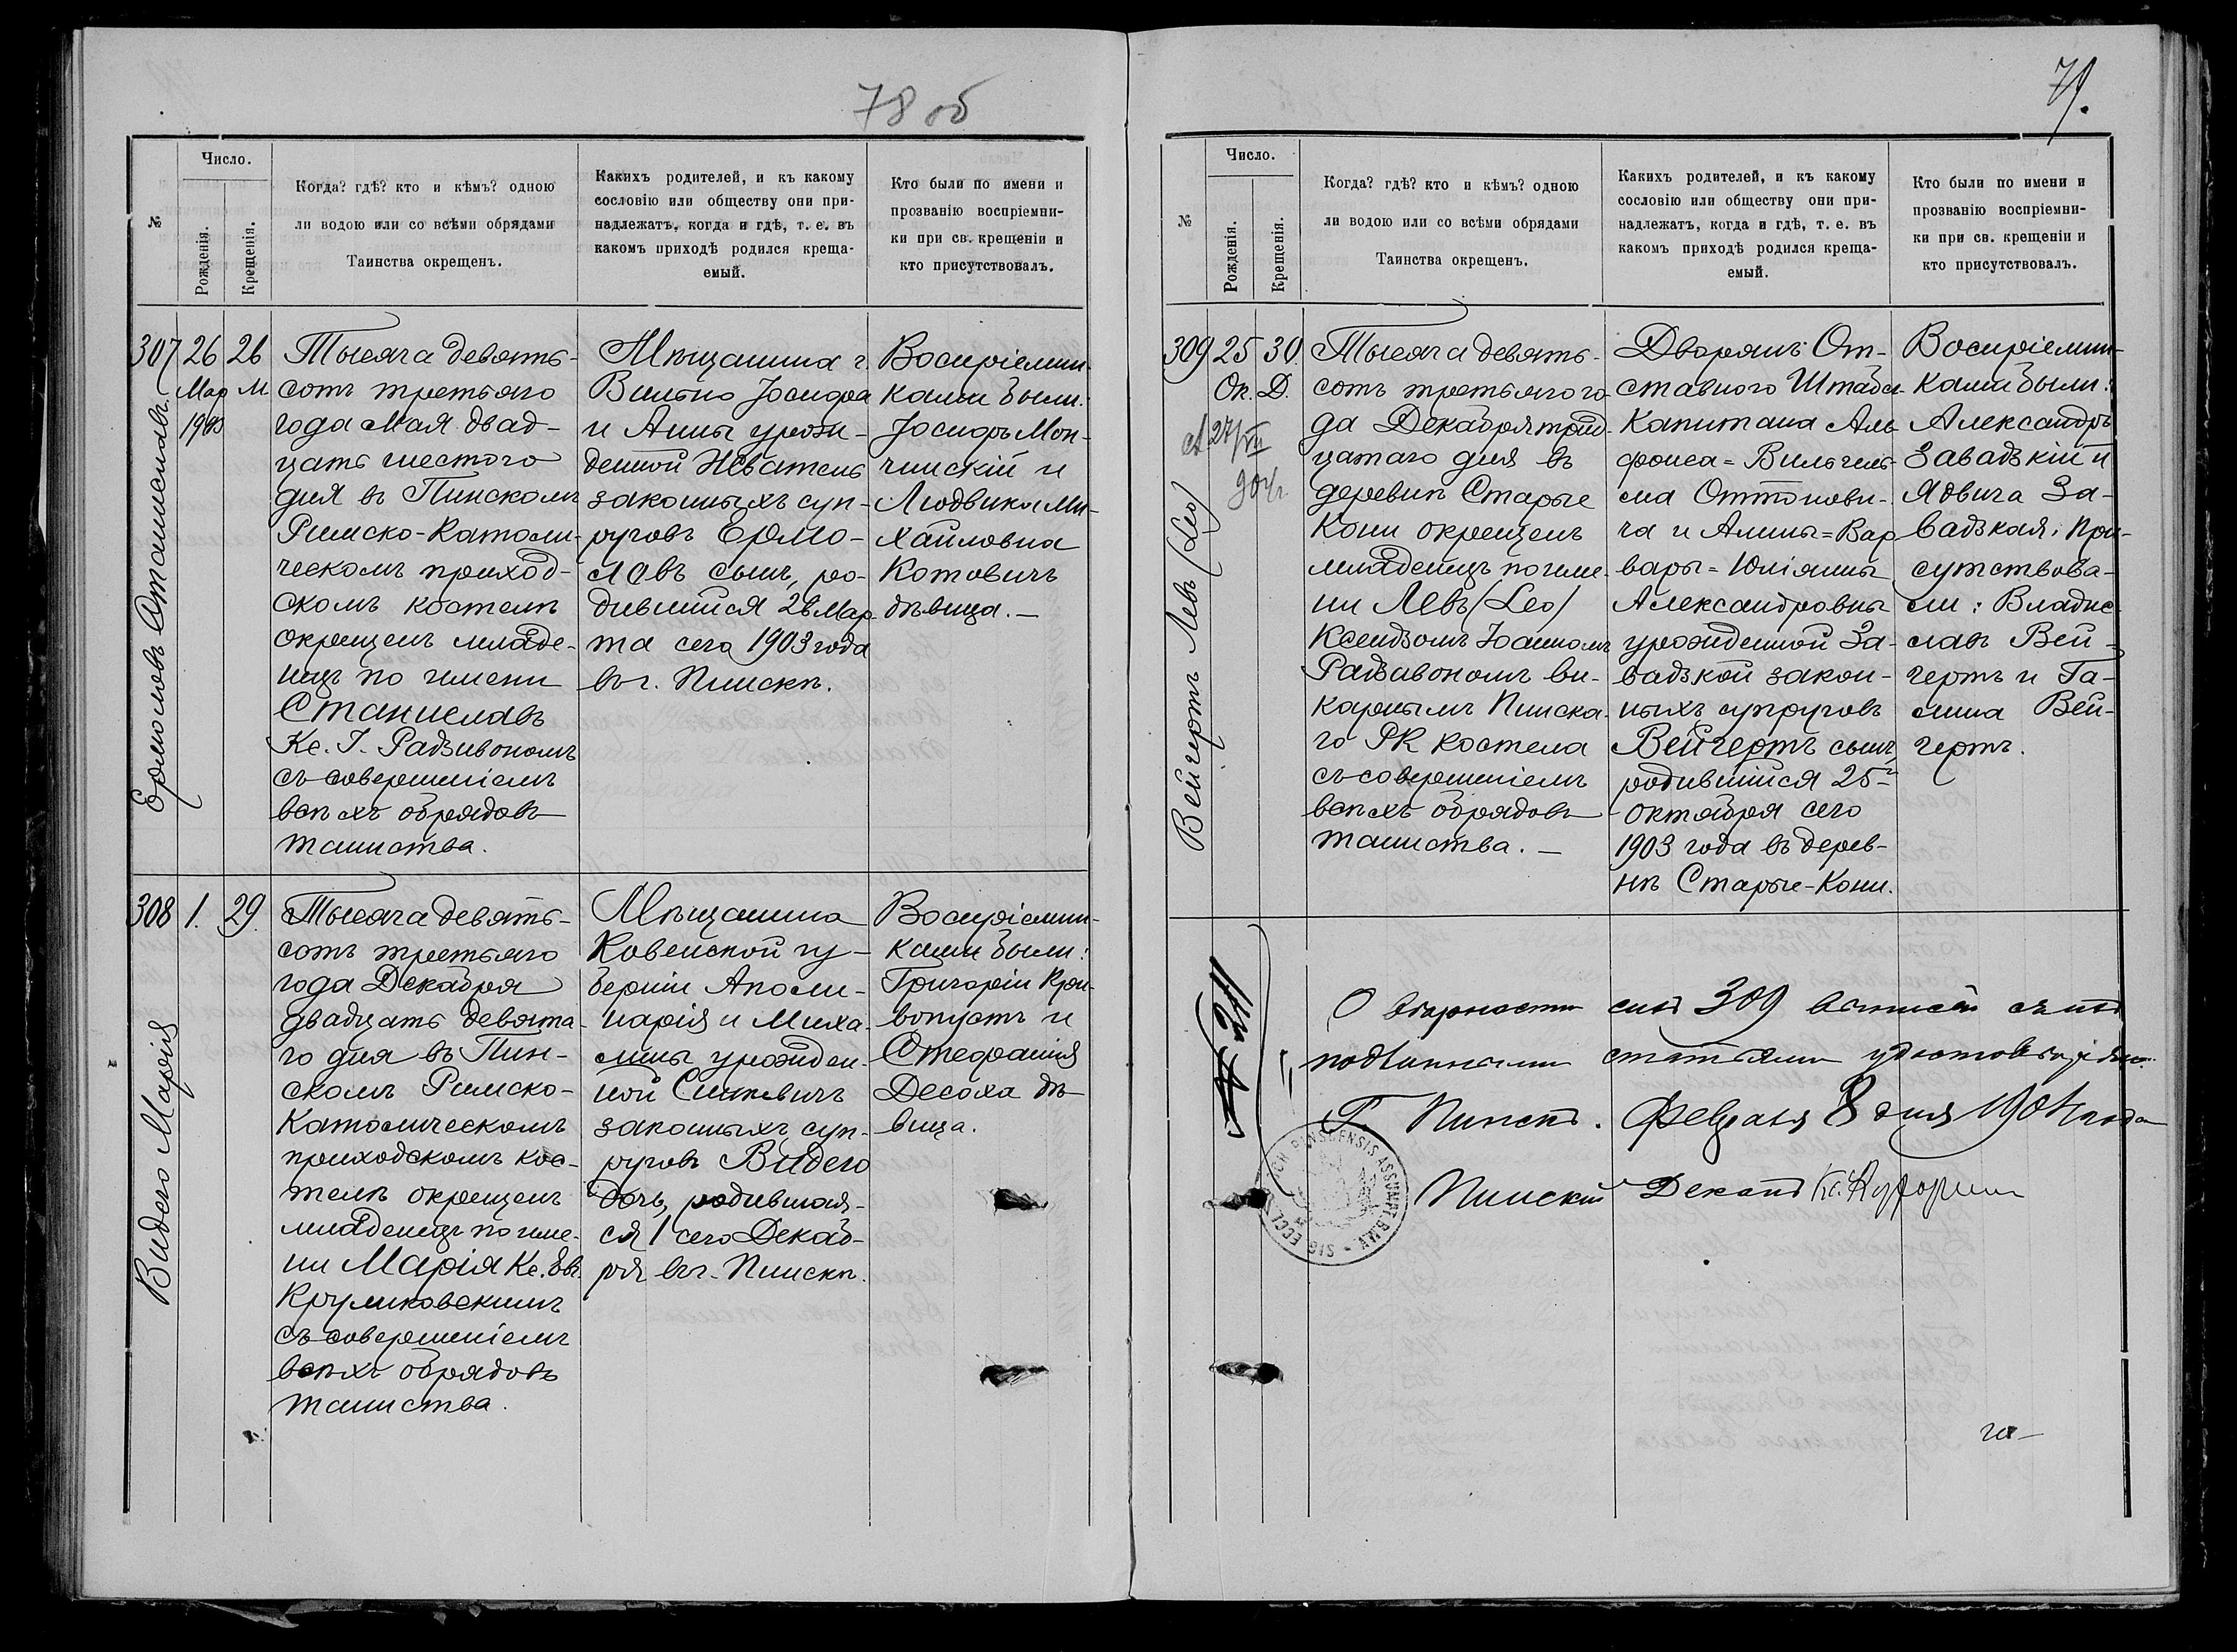 78 об
№
Число.
Рожденія.
Крещенія.
Когда? гдѣ? кто и кѣмъ? одною
ли водою или со всѣми обрядами
Таинства окрещенъ.
Какихъ родителей, и къ какому
сословію или обществу они при-
надлежатъ, когда и гдѣ, т. е. въ
какомъ приходѣ родился креща-
емый.
Кто были по имени и
прозванію воспріемни-
ки при св. крещеніи и
кто присутствовалъ.
307
26
Мар
1903
26
М
Ермоловъ Станиславъ
Тысяча девять-
сотъ третьяго
года Мая двад-
цать шестого
дня въ Пинскомъ
Римско-Католи-
ческомъ приход-
скомъ костелѣ
окрещенъ младе-
нецъ по имени
Станиславъ
Кс. І. Радзивономъ
съ совершеніемъ
всѣхъ обрядовъ
таинства.
Мѣщанина г.
Вильно Іосифа
и Анны урож-
денной
законныхъ суп-
руговъ Ермо-
ловъ сынъ, ро-
дившійся 26 Мар-
та сего 1903 года
въ г. Пинскѣ.
Воспріемни-
ками были:
Іосифъ Мон-
чинскій и
Людвика Ми-
хайловна
Котовичъ
дѣвица.
308
1.
29.
Видего Марія
Тысяча девять-
сотъ третьяго
года Декабря
двадцать девята-
го дня въ Пин-
скомъ Римско-
Католическомъ
приходскомъ кос-
телѣ окрещенъ
младенецъ по име-
ни Марія Кс. Ев.
Круликовскимъ
съ совершеніемъ
всѣхъ обрядовъ
таинства.
Мѣщанина
Ковенской гу-
берніи Аполи-
нарія и Миха-
лины урожден-
ной Синкевичъ
законныхъ суп-
руговъ Видего
дочь, родившая-
ся 1 сего Декаб-
ря въ г. Пинскѣ.
Воспріемни-
ками были:
Григорій Кри-
вопустъ и
Стефанія
Десоха дѣ-
вица.
79.
№
Число.
Рожденія.
Крещенія.
Когда? гдѣ? кто и кѣмъ? одною
ли водою или со всѣми обрядами
Таинства окрещенъ.
Какихъ родителей, и къ какому
сословію или обществу они при-
надлежатъ, когда и гдѣ, т. е. въ
какомъ приходѣ родился креща-
емый.
Кто были по имени и
прозванію воспріемни-
ки при св. крещеніи и
кто присутствовалъ.
309
25
Ок.
30.
Д.
27/VII
904 г.
Вейгертъ Левъ (Leo)
Тысяча девять-
сотъ третьяго го-
да Декабря трид-
цатаго дня въ
деревнѣ Старые
Кони окрещенъ
младенецъ по име-
ни Левъ (Leo)
Ксендзомъ Іоанномъ
Радзивономъ ви-
карнымъ Пинска-
го РК костела
съ совершеніемъ
всѣхъ обрядовъ
таинства.
Дворянъ: От-
ставного Штабсъ-
Капитана Аль-
фонса=Вильгель-
ма Оттонови-
ча и Алины=Вар-
вары=Юліянны
Александровны
урожденной За-
вадзкой закон-
ныхъ супруговъ
Вейгертъ сынъ,
родившійся 25-
Октября сего
1903 года въ дерев-
нѣ Старые-Кони.
Воспріемни-
ками были:
Александръ
Завадзкій и
Ядвига За-
вадзкая, при-
сутствова-
ли: Владис-
лавъ Вей-
гертъ и Га-
лина Вей-
гертъ.
О вѣрности сихъ 309 съ
подлинными статьями удостовѣряю.
Г. Пинскъ. Февраля 8 дня 1904 года
Пинскій Деканъ Кс.
SIG. ECCL. PINSCENSIS ASSUMPT. B.M.V.